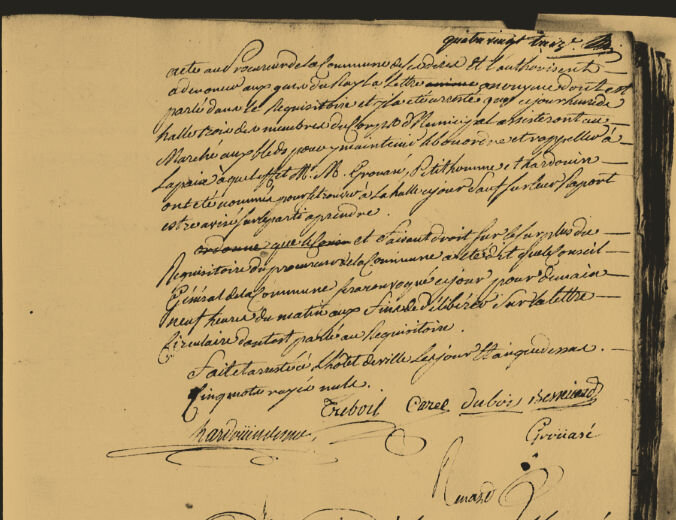 quatre vingt treize
acte au Procureur de la Commune de sa dire et l'authorisent
a devoneer aux juges du Roy la Lettre anonyme dont est
parlé dans le Requisitoire et places que ce jour heure de
halle trois des membres du Corps Municipal assisteront au
Marché aux bleds pour y maintenir le bon ordre et rappeller à
La paix à quel effet M. M. Grouard, Petithomme et hardouin
ont été nommés pour se trouver à La halle ce jour sauf sur leur raport
estre avisé sur le parti a prendre.
ordonne que le et faisant droit sur le surplus du
Requisitoire du procureur de la Commune arreté que le Conseil
Général de la Commune sera convoqué ce jour pour demain
neuf heures du matin aux fins de délibérer sur la lettre
circulaire dont est parlé au Requisitoire.
Fait et arresté à L'hotel de ville Les jour et an que dessus.
Cinq mots rayés nuls.
Treboil Carel dubois Besnard
hardouin Grouard
Renard